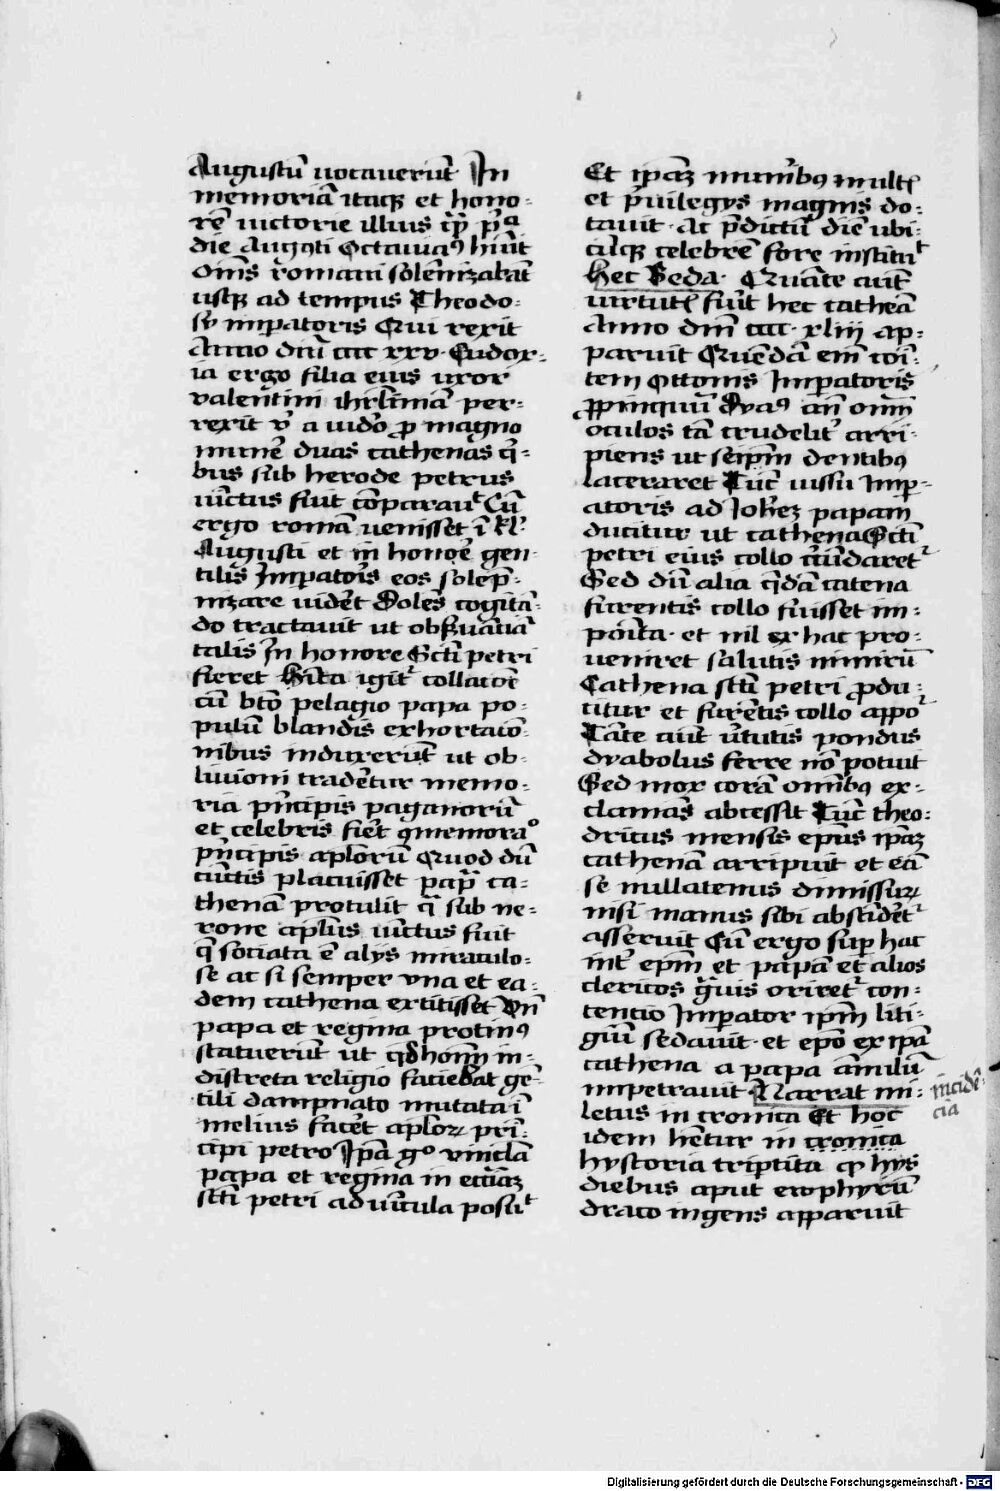 Augustū uocauerūt In
memoriā itaqꝫ et hono-
rē uictorie illius ip̄i pͣ
die Augꝰti Octauiaꝰ hūit
Om̄s romani solēnizabāt
usqꝫ ad tempus Theodo-
sij imp̄atoris Qui rexit
Anno dn̄i cccc xxv. Eudox-
ia ergo filia eius uxor
valentini ihrl̄imā per-
rexit
a iudeo ꝓ magno
mune͛ duas cathenas q̄-
bus sub herode petrus
uīctus fuit cōparauᵗ Cū
ergo romā uenisset ī kl͛
Augusti et in honoē gen-
tilis Imp̄atoīs eos solep̄-
nizare uidēt Dolēs cogitā-
do tractauit ut obseruātiā
talis In honore Sc̄ti petri
fieret Hīta igit͛ collacōe
cū bt̄o pelagio papa po-
pulū blandis exhortacō-
nibus induxerūt ut ob-
liuioni tradēt̄ur memo-
ria pn̄cipis paganorū
et celebris fiēt ꝯmemoraᵒ
pn̄cipis aplorū Quod dū
cūctis placuisset papa ca-
thenā protulit q̄ sub ne-
rone aplūs uīctus fuit
q̄ sociata ē alijs miraculo-
se ac si semper vna et ea-
dem cathena extitisset Vn̄
papa et regina protinꝰ
statuerūt ut qd̄ hom̄ in-
discreta religio faciebat gē-
tili dampnato mutata ī
melius facēt aplorꝝ prī-
cipi petro Ipā gᵒ vnīclā
papa et regina in ecciāꝫ
scti petri ad uīcula posuᵗ
Et ip̄aꝫ munībꝰ multꝭ
et p̄uilegijs magnis do-
tauit. Ac p̄dictū diē ubi-
cūqꝫ celebrē fore instituᵗ
Hec Beda. Quāte aūt
uirtutꝭ fūit hec catheā
Anno dn̄i cccc. xliiij ap-
paruit Quēdā em̄ coī-
tem Ottonis Imp̄atoris
ꝓpinquū Dyaꝰ an̄ oīm
oculos tā crudelit͛ arri-
piens ut seip̄m dentibꝰ
laceraret Tūc iussu Imp̄-
atoris ad Ioh̄eꝫ papam
ducitur ut cathena Sc̄ti
petri eius collo c̄cūdaret͛
Sed dū alia q̄dā catena
furentis collo fuisset im-
poīta. et nil ex hac pro-
ueniret salutis nimirū
Cathena sc̄ti petri ꝓdu-
citur et furētis collo appoᵗ
Tāte aūt v͛tutis pondus
dyabolus ferre nō potuit
Sed mox corā omībꝰ ex-
clamās abcessit Tūc theo-
dricus mensis ep̄us ip̄aꝫ
cathenā arripuit et eā
se nullatenus dimissurꝝ
nisi manus sibi abscīdēt͛
asseruit Cū ergo sup̄ hac
int͛ ep̄m et papā et alios
clericos gͣuis oriret͛ con-
tencio Imp̄ator ip̄m liti-
giū sedauit. et ep̄o ex ip̄a
cathena a papa ānulū
impetrauit Narrat mi-
letus in cronica Et hoc
idem hētur in cronica
hystoria trip̄tita qͥ hijs
diebus aput
draco ingens apparuit
incidē-
cia
Digitalisierung gefördert durch die Deutsche Forschungsgemeinschaft - DFG